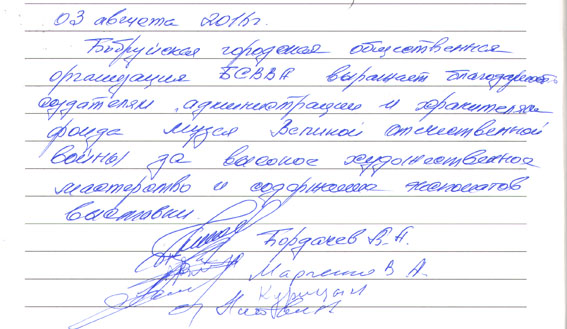 03 августа 2016г.
Бобруйская городская общественная
организация БСВВА выражает благодарность
создателям, администрации и хранителям
фонда музея Великой отечественной
войны за высокое художественное
мастерство и содержание экспонатов
выставки.
Бордачев В.А.
Марченко В А.
Курицын